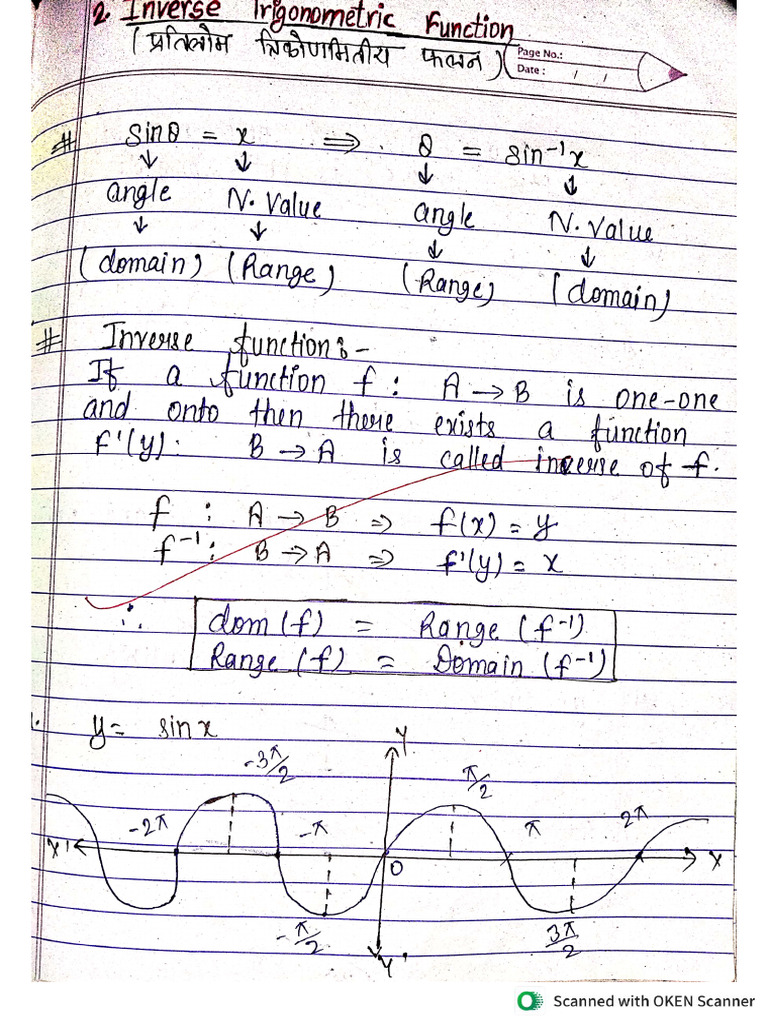 2. Inverse Trigonometric Function
(प्रतिलोम त्रिकोणमितीय फलन)
Page No.:
Date : / /
# Sinθ = x ⇒ θ = sin⁻¹x
↓ ↓ ↓ ↓
angle N. Value angle N. Value
↓ ↓ ↓ ↓
(domain) (Range) (Range) (domain)
# Inverse function:-
If a function f : A → B is one-one
and onto then there exists a function
f'(y) : B → A is called inverse of f.
f : A → B ⇒ f(x) = y
f⁻¹ : B → A ⇒ f'(y) = x
∴ dom (f) = Range (f⁻¹)
Range (f) = Domain (f⁻¹)
1. y = sin x
Y
-3π/2 π/2
-2π -π π 2π
X' O X
-π/2 3π/2
Y'
Scanned with OKEN Scanner